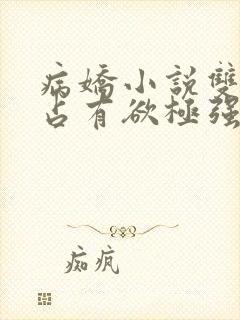 病嬌小説雙
占有欲極强
痴疯